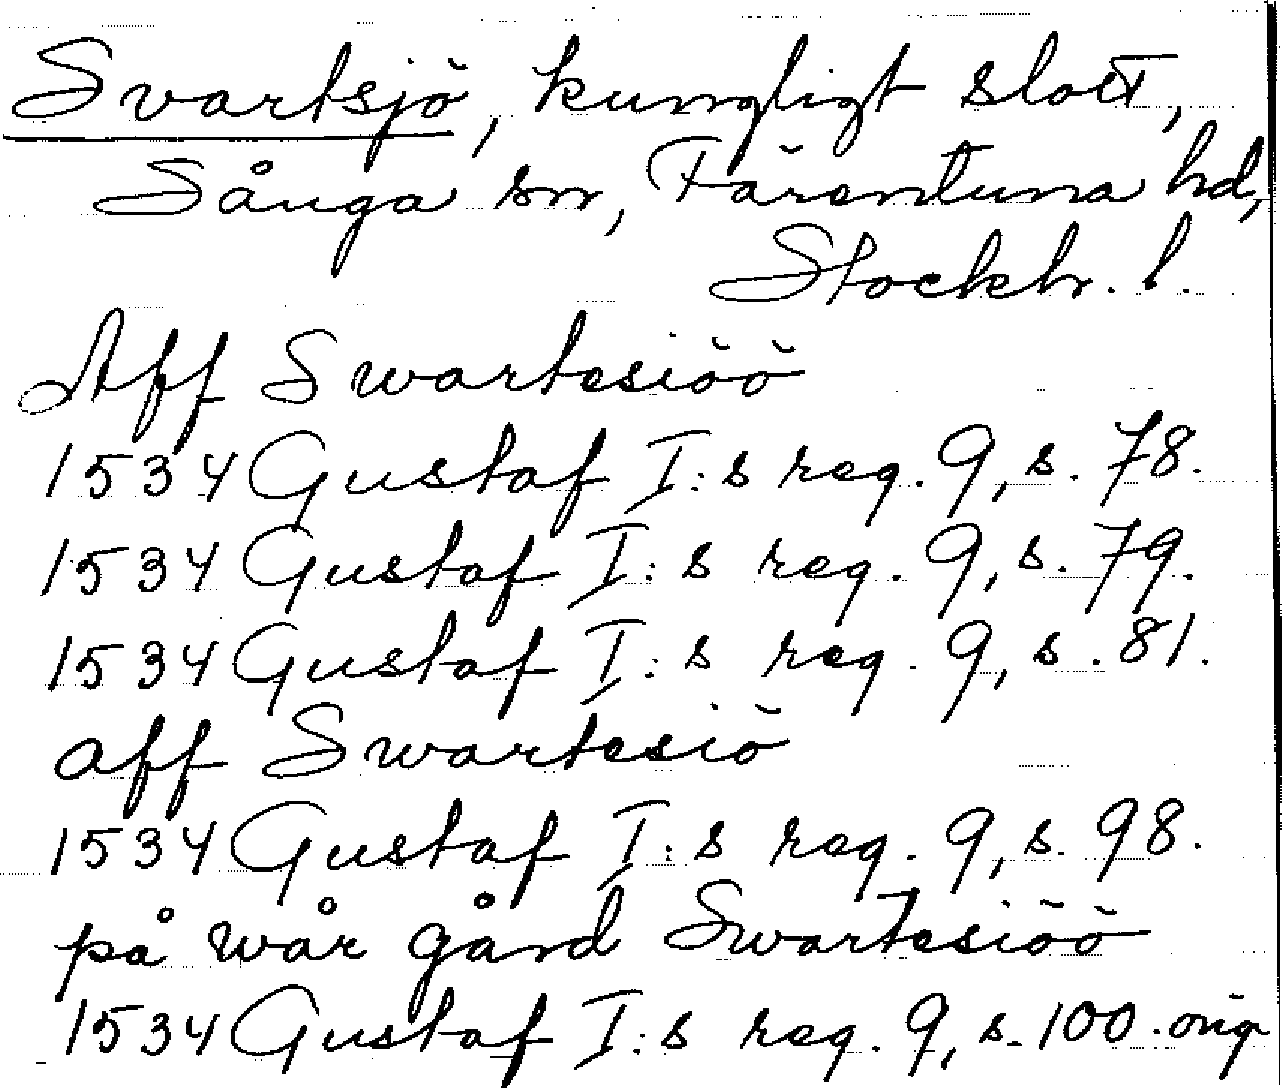 Svartsjö, kungligt slott,
Sånga sn, Färentuna hd,
Stockh. l.
Aff Swartesiöö
1534 Gustaf I:s reg. 9, s. 78.
1534 Gustaf I:s reg. 9, s. 79.
1534 Gustaf I:s reg. 9, s. 81.
aff Swartesiö
1534 Gustaf I:s reg. 9, s. 98.
på wår gård Swartesiöö
1534 Gustaf I:s reg. 9, s. 100. orig